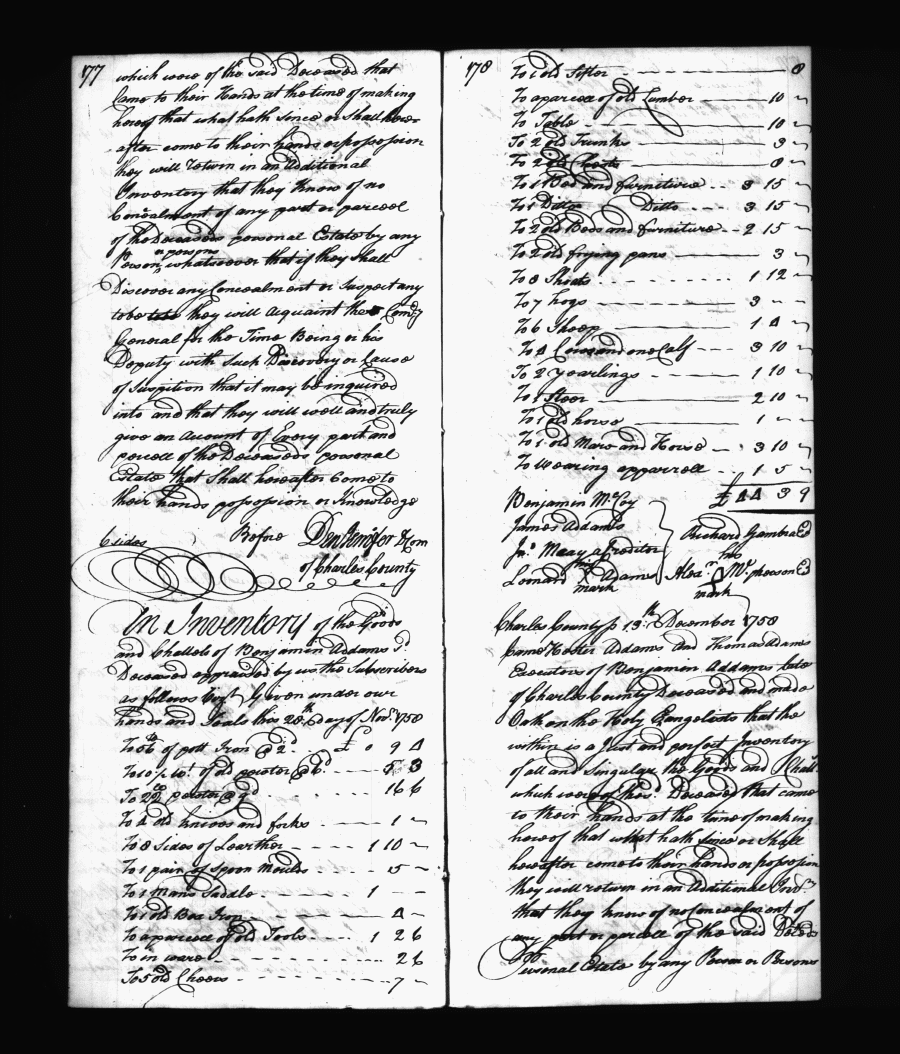 177
which were of the said Deceased that
Came to their Hands at the time of making
hereof that what hath Since or Shall here
after come to their hands or possession
they will return in an Additional
Inventory that they Know of no
Concealment of any part or parcell
of the Deceaseds personal Estate by any
Person or persons whatsoever that if they Shall
Discover any Concealment or Suspect any
to be they will acquaint the Comry
General for the Time Being or his
Deputy with Such Discovery or Cause
of Suspition that it may be inquired
into and that they will well and truly
give an account of Every part and
parcell of the Deceaseds personal
Estate that Shall hereafter Come to
their hands possession or Knowledge
6 sides Before Dan Jenifer Com
of Charles County
An Inventory of the Goods
and Chattels of Benjamin Addams
Deceased appraised by us the Subscribers
as follows Given under our
hands and Seals this 28th day of Novr 1758
To 56 lb of pott Iron @ 2d £ 0 9 4
To of old pewter @ 6d 5 3
To 22 pewter @ 9d 16 6
To 4 old knives and forks 1
To 8 Sides of Learther 1 10
To 1 pair of Spoon Moulds 5
To 1 mans Saddle 1
To 1 old Box Iron 4
To a parcell of old Tools 1 2 6
To tin ware 2 6
To 5 old Cheers 7
178
To 1 old Sifter 8
To a parcell of old Lumber 10
To Table 10
To 2 old Trunks 3
To 2 old Chests 8
To 1 Bed and furniture 3 15
To 1 Ditto Ditto 3 15
To 2 old Beds and furniture 2 15
To 2 old frying pans 3
To 8 Shoats 1 12
To 7 hogs 3
To 6 Sheep 1 4
To 4 Cows and one Calf 3 10
To 2 yearlings 1 10
To 1 Steer 2 10
To 1 old horse 1
To 1 old Mare and Horse 3 10
To wearing apparrell 1 5
£ 44 3 9
Benjamin McCoy
James Addams
Jno. May a Creditor Richard Gambra
his his
Leonard X Adams Alexr McPherson
mark mark
Charles County ss 13th December 1758
Came Hester Addams and Thomas Adams
Executors of Benjamin Addams late
of Charles County Deceased and made
Oath on the Holy Evangelists that the
within is a Just and perfect Inventory
of all and Singular the Goods and Chatls
which were of the sd Deceased that came
to their hands at the time of making
hereof that what hath since or Shall
hereafter come to their hands or possession
they will return in an Additional Invy
that they know of no Concealment of
any part or parcell of the said Deceds
Personal Estate by any Person or Persons